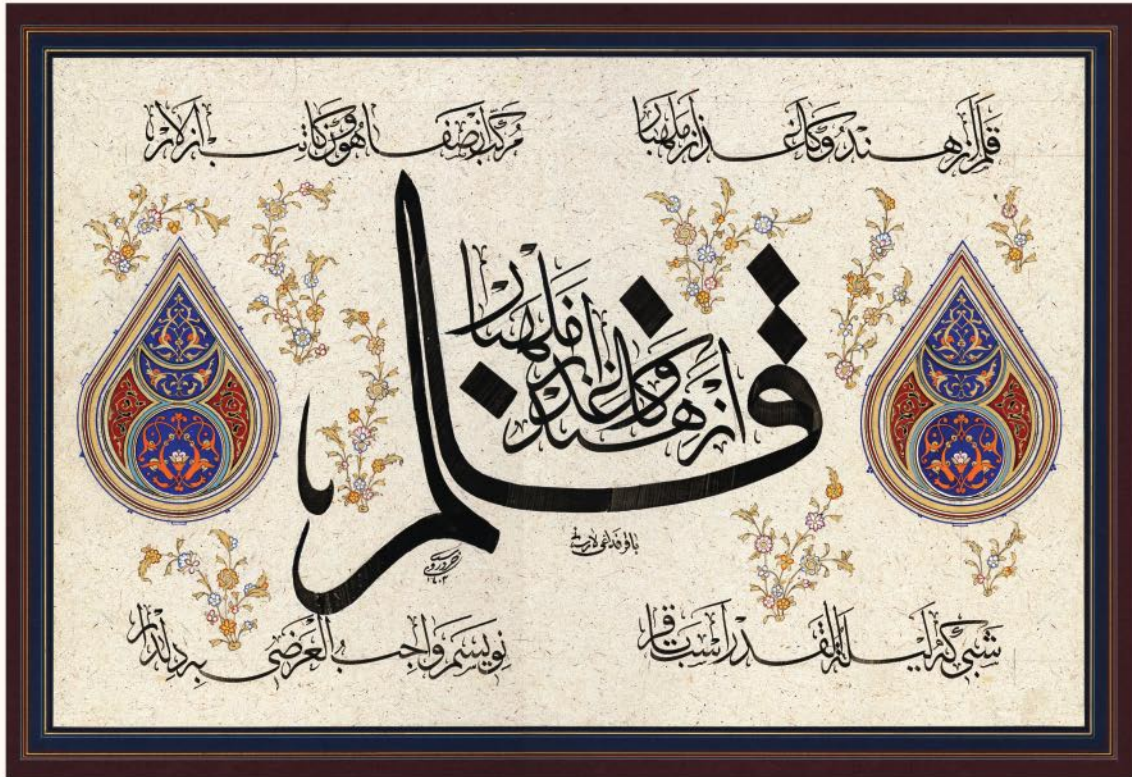 قلم از هند و کاغذ از ملهبار
مرکب از صفاهون کاتب از لار
قلم از هند و کاغذ از ملهبار
باقر فداغی
۱۴۰۳
شبی که لیلة القدر است باقر
نویسم واجب العرضی به دلدار